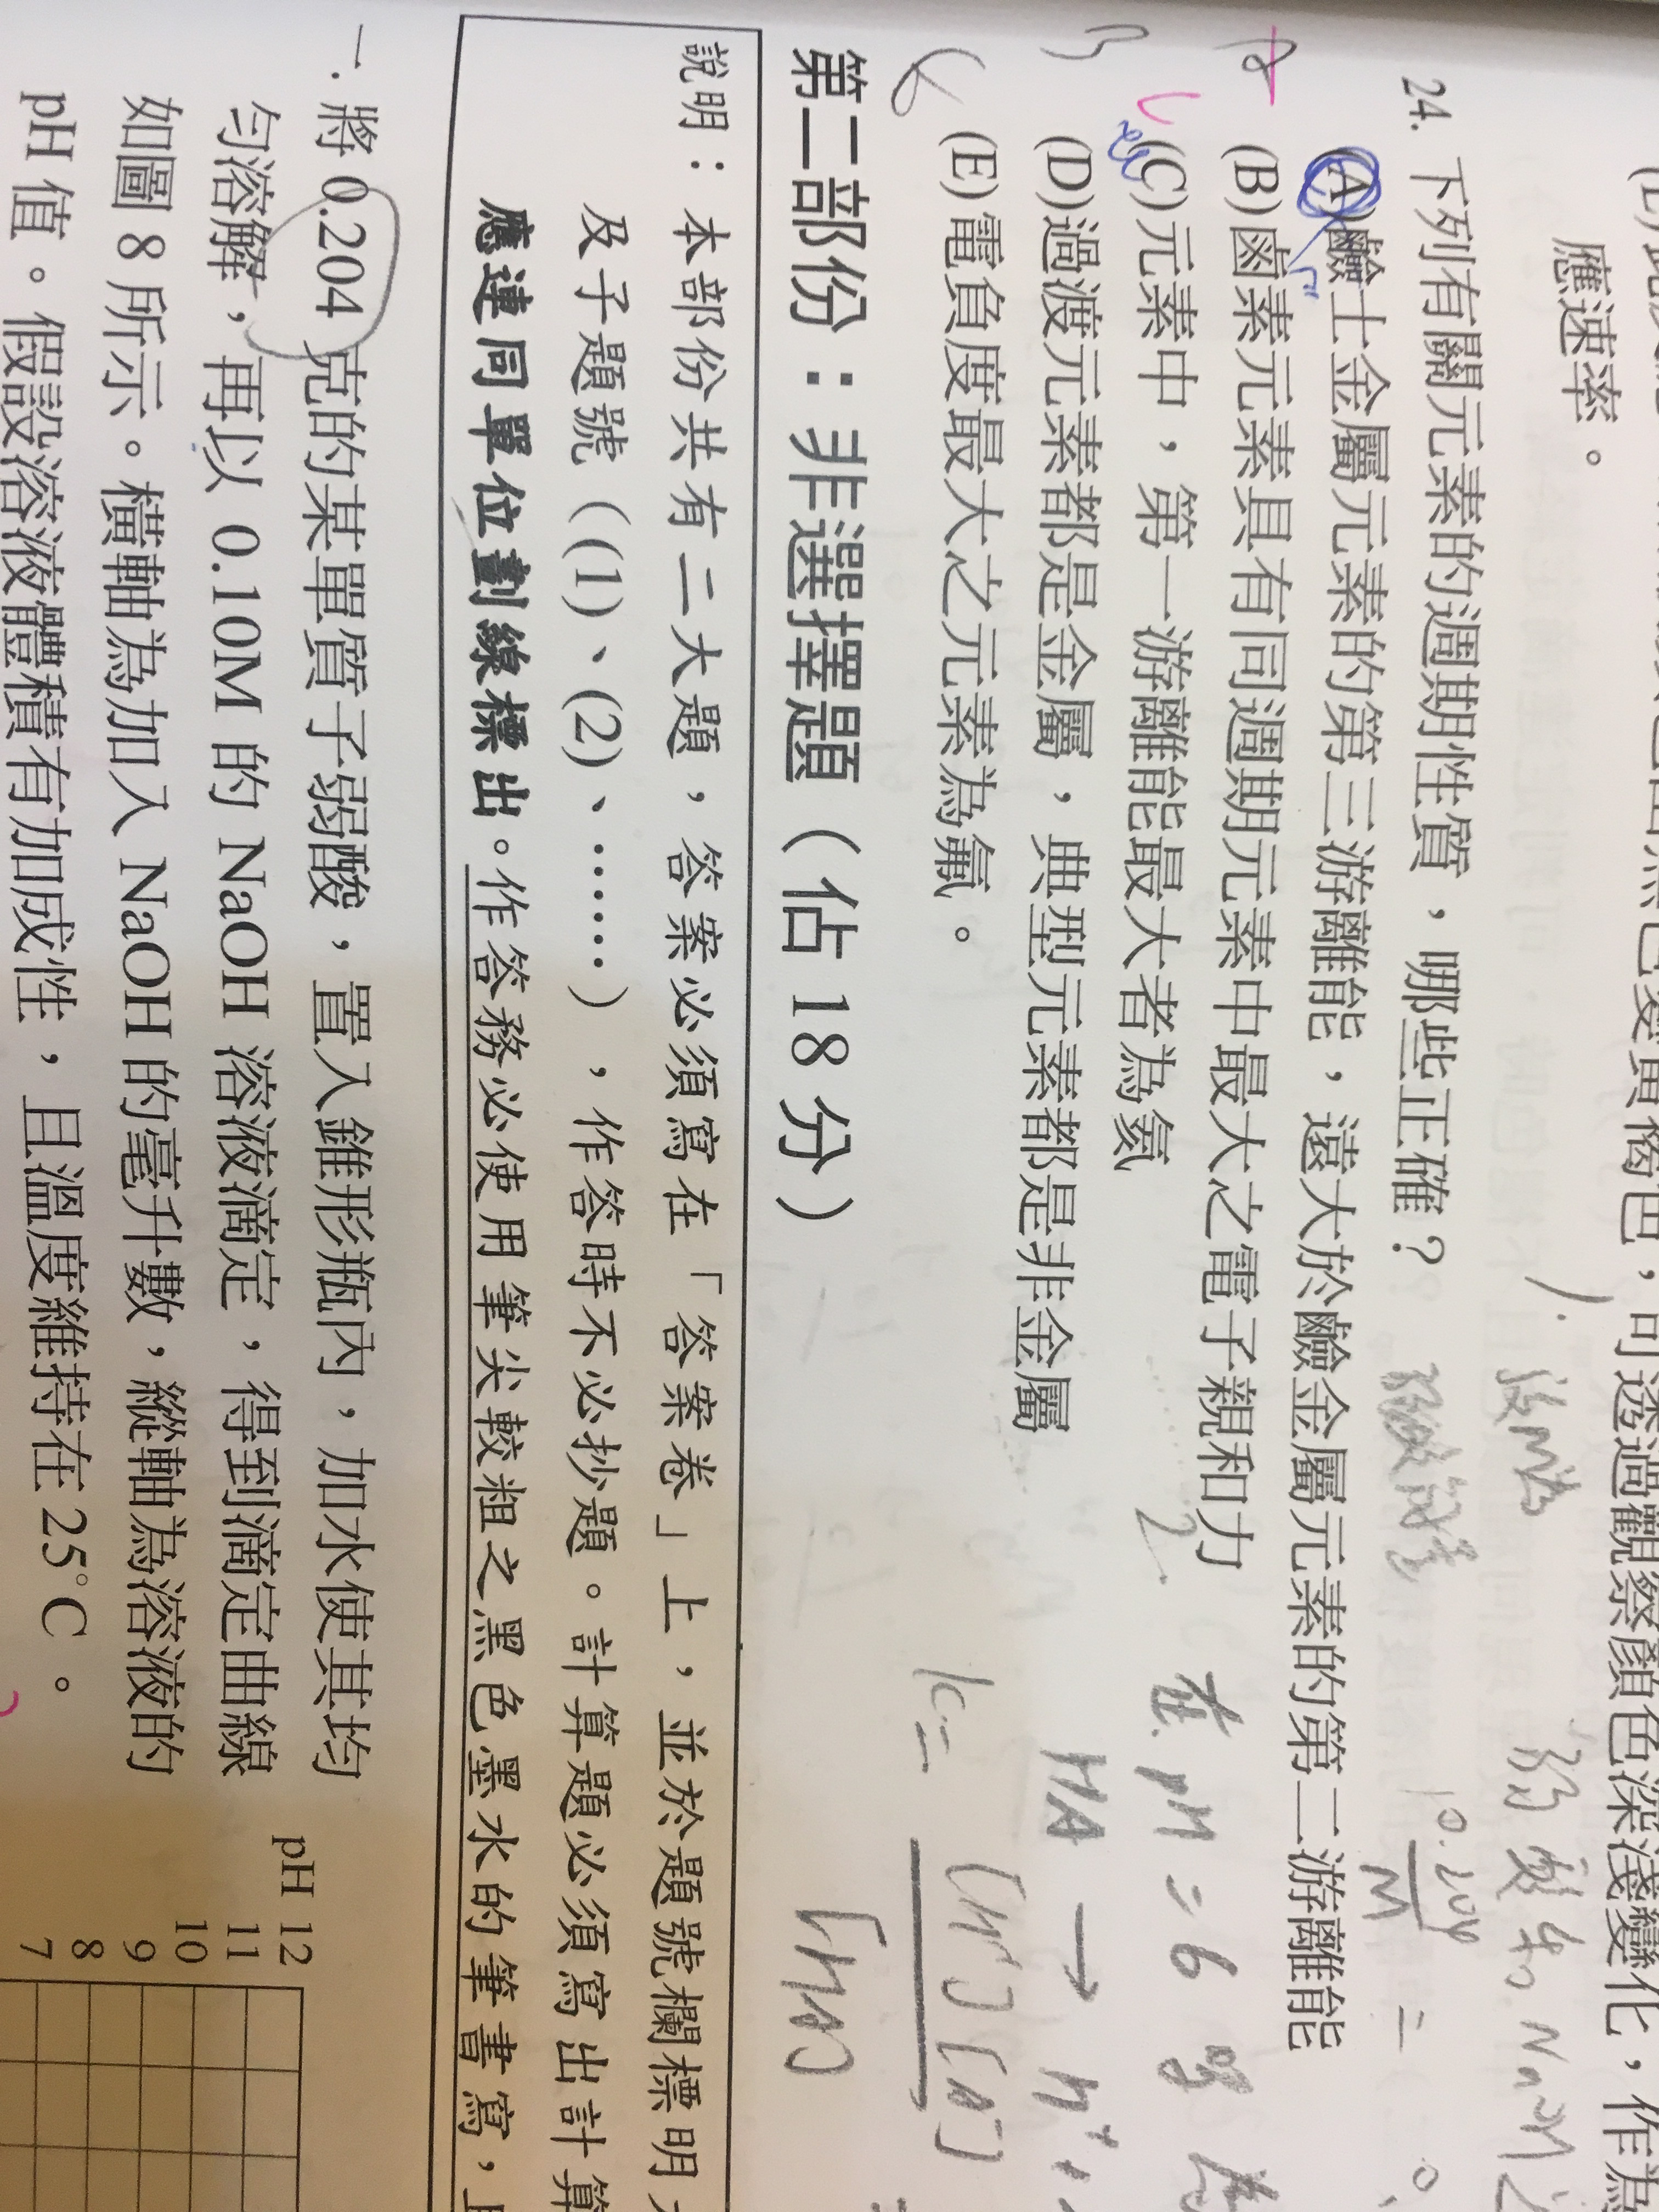 應速率。
24. 下列有關元素的週期性質，哪些正確？
(A)鹼土金屬元素的第三游離能，遠大於鹼金屬元素的第二游離能
(B)鹵素元素具有同週期元素中最大之電子親和力
(C)元素中，第一游離能最大者為氦
(D)過渡元素都是金屬，典型元素都是非金屬
(E)電負度最大之元素為氟。
2.
在 pH = 6 時
HA → H⁺ +
K = [H⁺][A⁻]
[HA]
0.204
M
=
第二部份：非選擇題（佔 18 分）
說明：本部份共有二大題，答案必須寫在「答案卷」上，並於題號欄標明
及子題號（(1)、(2)、……），作答時不必抄題。計算題必須寫出計算
應連同單位劃線標出。作答務必使用筆尖較粗之黑色墨水的筆書寫，
一. 將 0.204 克的某單質子弱酸，置入錐形瓶內，加水使其均
勻溶解，再以 0.10M 的 NaOH 溶液滴定，得到滴定曲線
如圖 8 所示。橫軸為加入 NaOH 的毫升數，縱軸為溶液的
pH 值。假設溶液體積有加成性，且溫度維持在 25°C。
pH 12
11
10
9
8
7